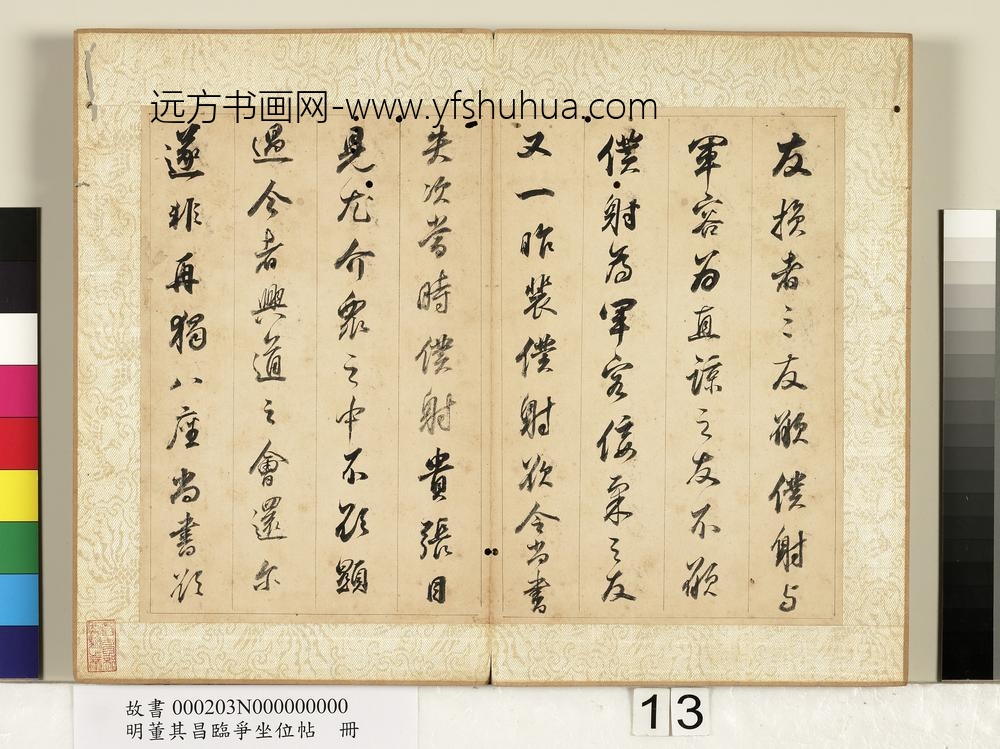 远方书画网-www.yfshuhua.com
友損者三友願僕射與
軍容為直諒之友不願
僕射為軍容佞柔之友
又一昨裴僕射欲令尚書
失次當時僕射貴張目
見尤介眾之中不欲顯
過今者興道之會還尔
遂非再猲八座尚書欲
故書000203N000000000
明董其昌臨爭坐位帖 冊
13